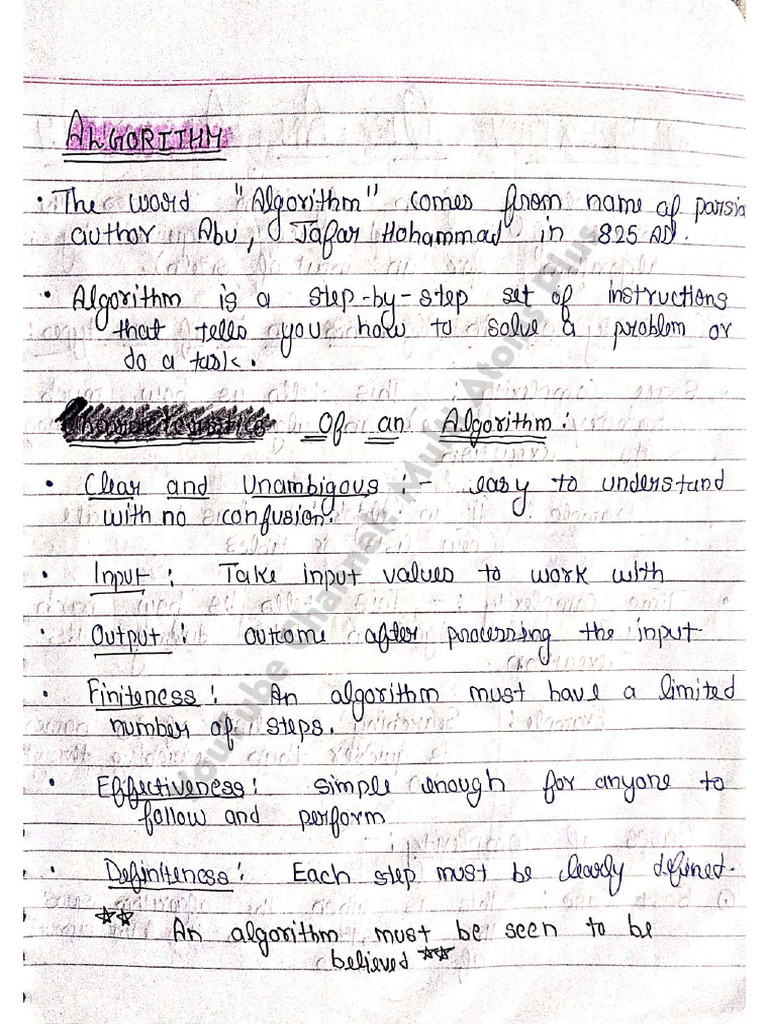 ALGORITHM
• The word "Algorithm" comes from name of parsia
author Abu, Jafar Mohammad in 825 AD.
• Algorithm is a step-by-step set of instructions
that tells you how to solve a problem or
do a task.
Of an Algorithm:
• Clear and Unambigous :- easy to understand
with no confusion.
• Input : Take input values to work with
• Output : outcome after processing the input
• Finiteness : An algorithm must have a limited
number of steps.
• Effectiveness : simple enough for anyone to
follow and perform
• Definiteness : Each step must be clearly defined.
** An algorithm must be seen to be
believed **
YouTube Channel: Multi Atoms Plus